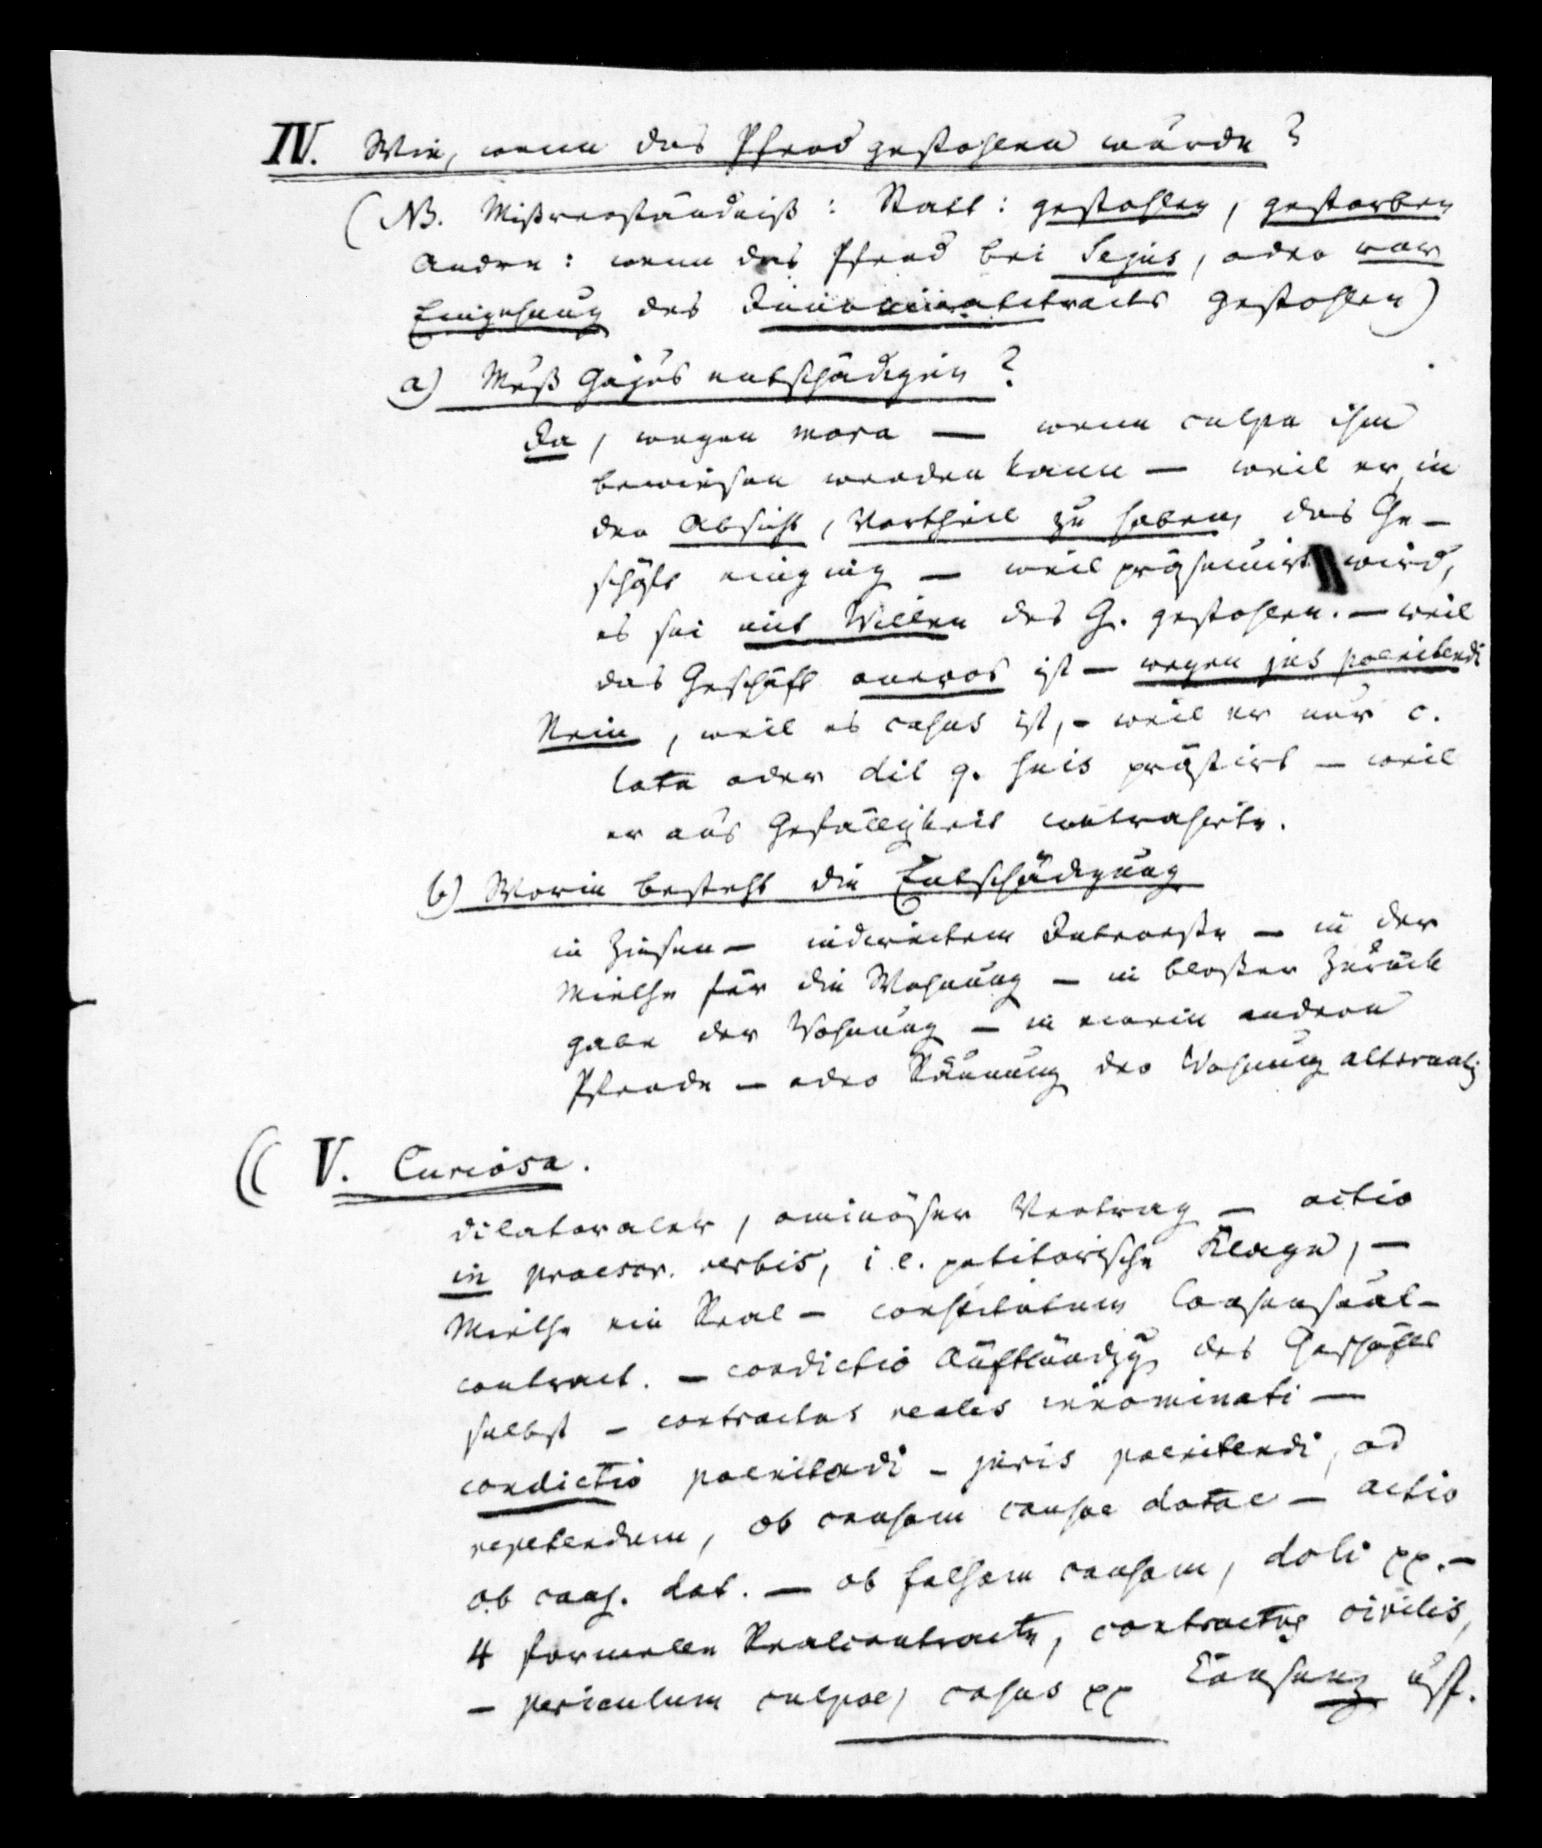 IV. Wie, wenn das Pferd gestohlen würde?
(NB. Mißverständniß: Statt: gestohlen, gestorben
Andre: wenn das Pferd bei Sejus, oder vor
Eingehung des Innominatctracts gestohlen)
a) Muß Gajus entschädigen?
Ja, wegen mora — wenn culpa ihm
bewiesen werden kann — weil er in
der Absicht, Vortheil zu haben, das Ge-
schäft einging — weil präsumirt wird,
es sei mit Willen des G. gestohlen. — weil
das Geschäft oneros ist — wegen jus poenitendi
Nein, weil es casus ist, — weil er nur c.
lata oder dil q. suis prästirt — weil
er aus Gefälligkeit contrahirte.
b) Worin besteht die Entschädigung
in Zinsen — indirectem Interesse — in der
Miethe für die Wohnung — in bloßer Zurück
gabe der Wohnung — in einem andern
Pferde — oder Räumung der Wohnung alternativ
(( V. Curiosa.
dilateraler, ominöser Vertrag — actio
in praescr. verbis, i.e. petitorische Klage, —
Miethe ein Real — constitutum Consensual-
contract. — condictio Aufkündigg des Geschäfts
selbst — contractus realis innominati —
condictio poenitendi — juris poenitendi, ad
repetendum, ob causam causae datae — actio
ob caus. dat. — ob falsam causam, doli pp. —
4 formelle Realcontracte, contractus civilis,
— periculum culpae, casus pp Consenz usf.